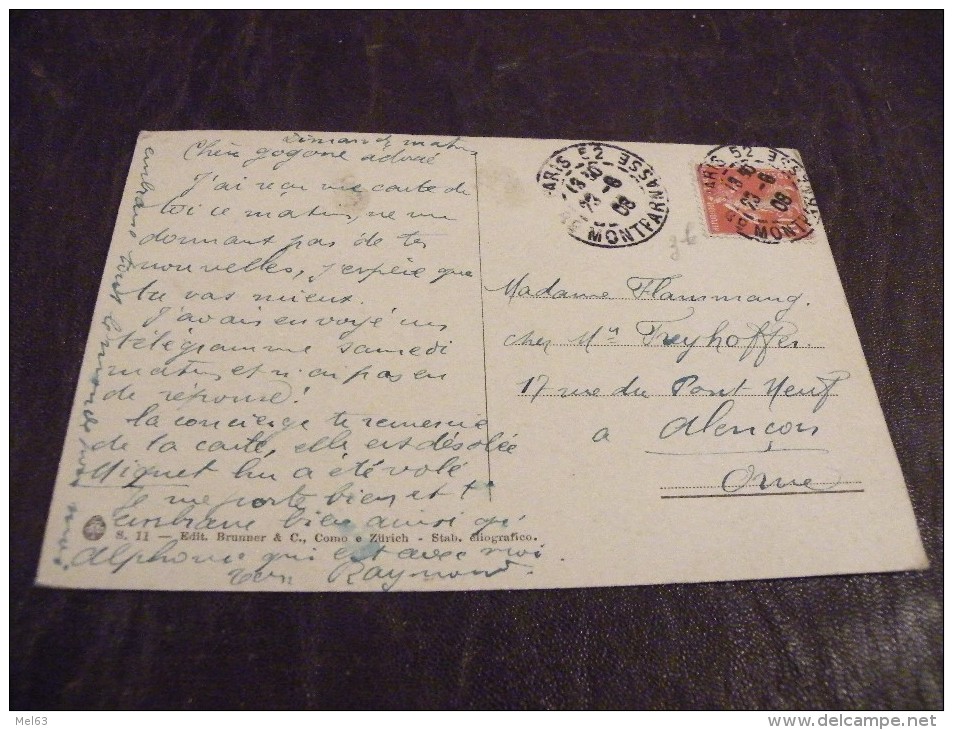 Dimanche matin
Chère gogone adorée
J'ai reçu une carte de
toi ce matin, ne me
donnant pas de tes
nouvelles, j'espère que
tu vas mieux.
J'avais envoyé un
télégramme samedi
matin et n'ai pas eu
de réponse!
la concierge te remercie
de la carte, elle est désolée
Miquet lui a été volé
Je me porte bien et t'
embrasse bien ainsi que
S. 11 — Edit. Brunner & C., Como e Zürich - Stab. eliografico.
Alphonse qui est avec moi
ton Raymond.
embrasse tout le monde pour moi
PARIS 52
13 30
23 - 6
08
59 MONTPARNASSE
PARIS 52
13 30
23 - 6
08
59 MONTPARNASSE
Madame Flansmang.
chez Mr Freyhoffer.
17 rue du Pont-Neuf
a Alençon
Orne
Mel63
www.delcampe.net